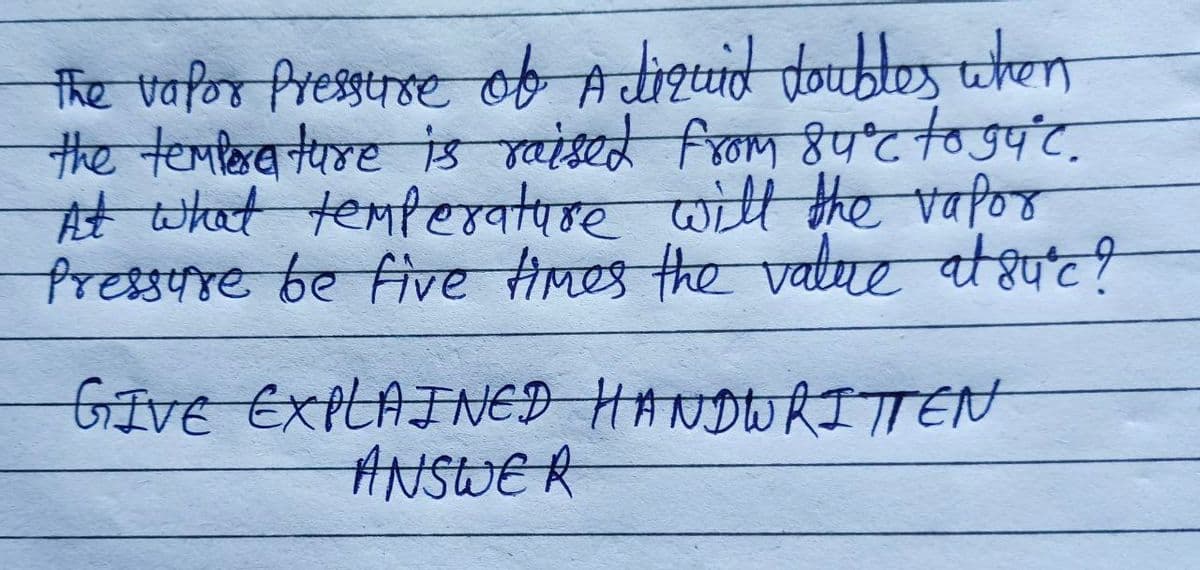 The vapor Pressure of A liquid doubles when
the temperature is raised from 84°c to 94°c.
At what temperature will the vapor
Pressure be five times the value at 84°c?
GIVE EXPLAINED HANDWRITTEN
ANSWER